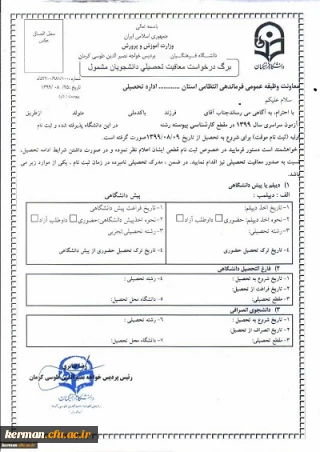 باسمه تعالی
جمهوری اسلامی ایران
وزارت آموزش و پرورش
دانشگاه فرهنگیان پردیس خواجه نصیرالدین طوسی کرمان
محل الصاق عکس
برگ درخواست معافیت تحصیلی دانشجویان مشمول
معاونت وظیفه عمومی فرماندهی انتظامی استان .......... اداره تحصیلی
سلام علیکم
با احترام، به آگاهی می رساند جناب آقای فرزند باکدملی متولد ازطریق
آزمون سراسری سال ۱۳۹۹ در مقطع کارشناسی پیوسته رشته در این دانشگاه پذیرفته شده و ثبت نام
اولیه (ثبت نام موقت) برای شروع به تحصیل از تاریخ ۱۳۹۹/۰۸/۰۹ صورت گرفته است.
خواهشمند است دستور فرمایید در خصوص ثبت نام قطعی ایشان اعلام نظر نموده و در صورت داشتن شرایط ادامه تحصیل،
نسبت به صدور معافیت تحصیلی نیز اقدام نمایید. در ضمن، مدرک تحصیلی نامبرده در زمان ثبت نام ، یکی از موارد زیر می باشد:
۱) دیپلم یا پیش دانشگاهی
الف : دیپلمب : پیش دانشگاهی
۱-تاریخ اخذ دیپلم: ۱-تاریخ فراغت از پیش دانشگاهی
۲-نحوه اخذ دیپلم: حضوری داوطلب آزاد ۲-نحوه اخذ پیش دانشگاهی:حضوری داوطلب آزاد
۳- رشته تحصیلی: ۳-رشته تحصیلی:تجربی
۴-تاریخ ترک تحصیل حضوری ۴-تاریخ ترک تحصیل حضوری از پیش دانشگاهی
۲) فارغ التحصیل دانشگاهی
۱- تاریخ شروع به تحصیل : ۴- رشته تحصیلی:
۲-تاریخ فراغت از تحصیل:
۳-مقطع تحصیلی: ۷-دانشگاه محل تحصیل:
۳) دانشجوی انصرافی
۱-تاریخ شروع به تحصیل: ۶- رشته تحصیلی:
۲-تاریخ انصراف از تحصیل:
۳-مقطع تحصیلی: ۷- دانشگاه محل تحصیل:
رئیس پردیس خواجه نصیرالدین طوسی کرمان
kerman.cfu.ac.ir
kerman.cfu.ac.ir